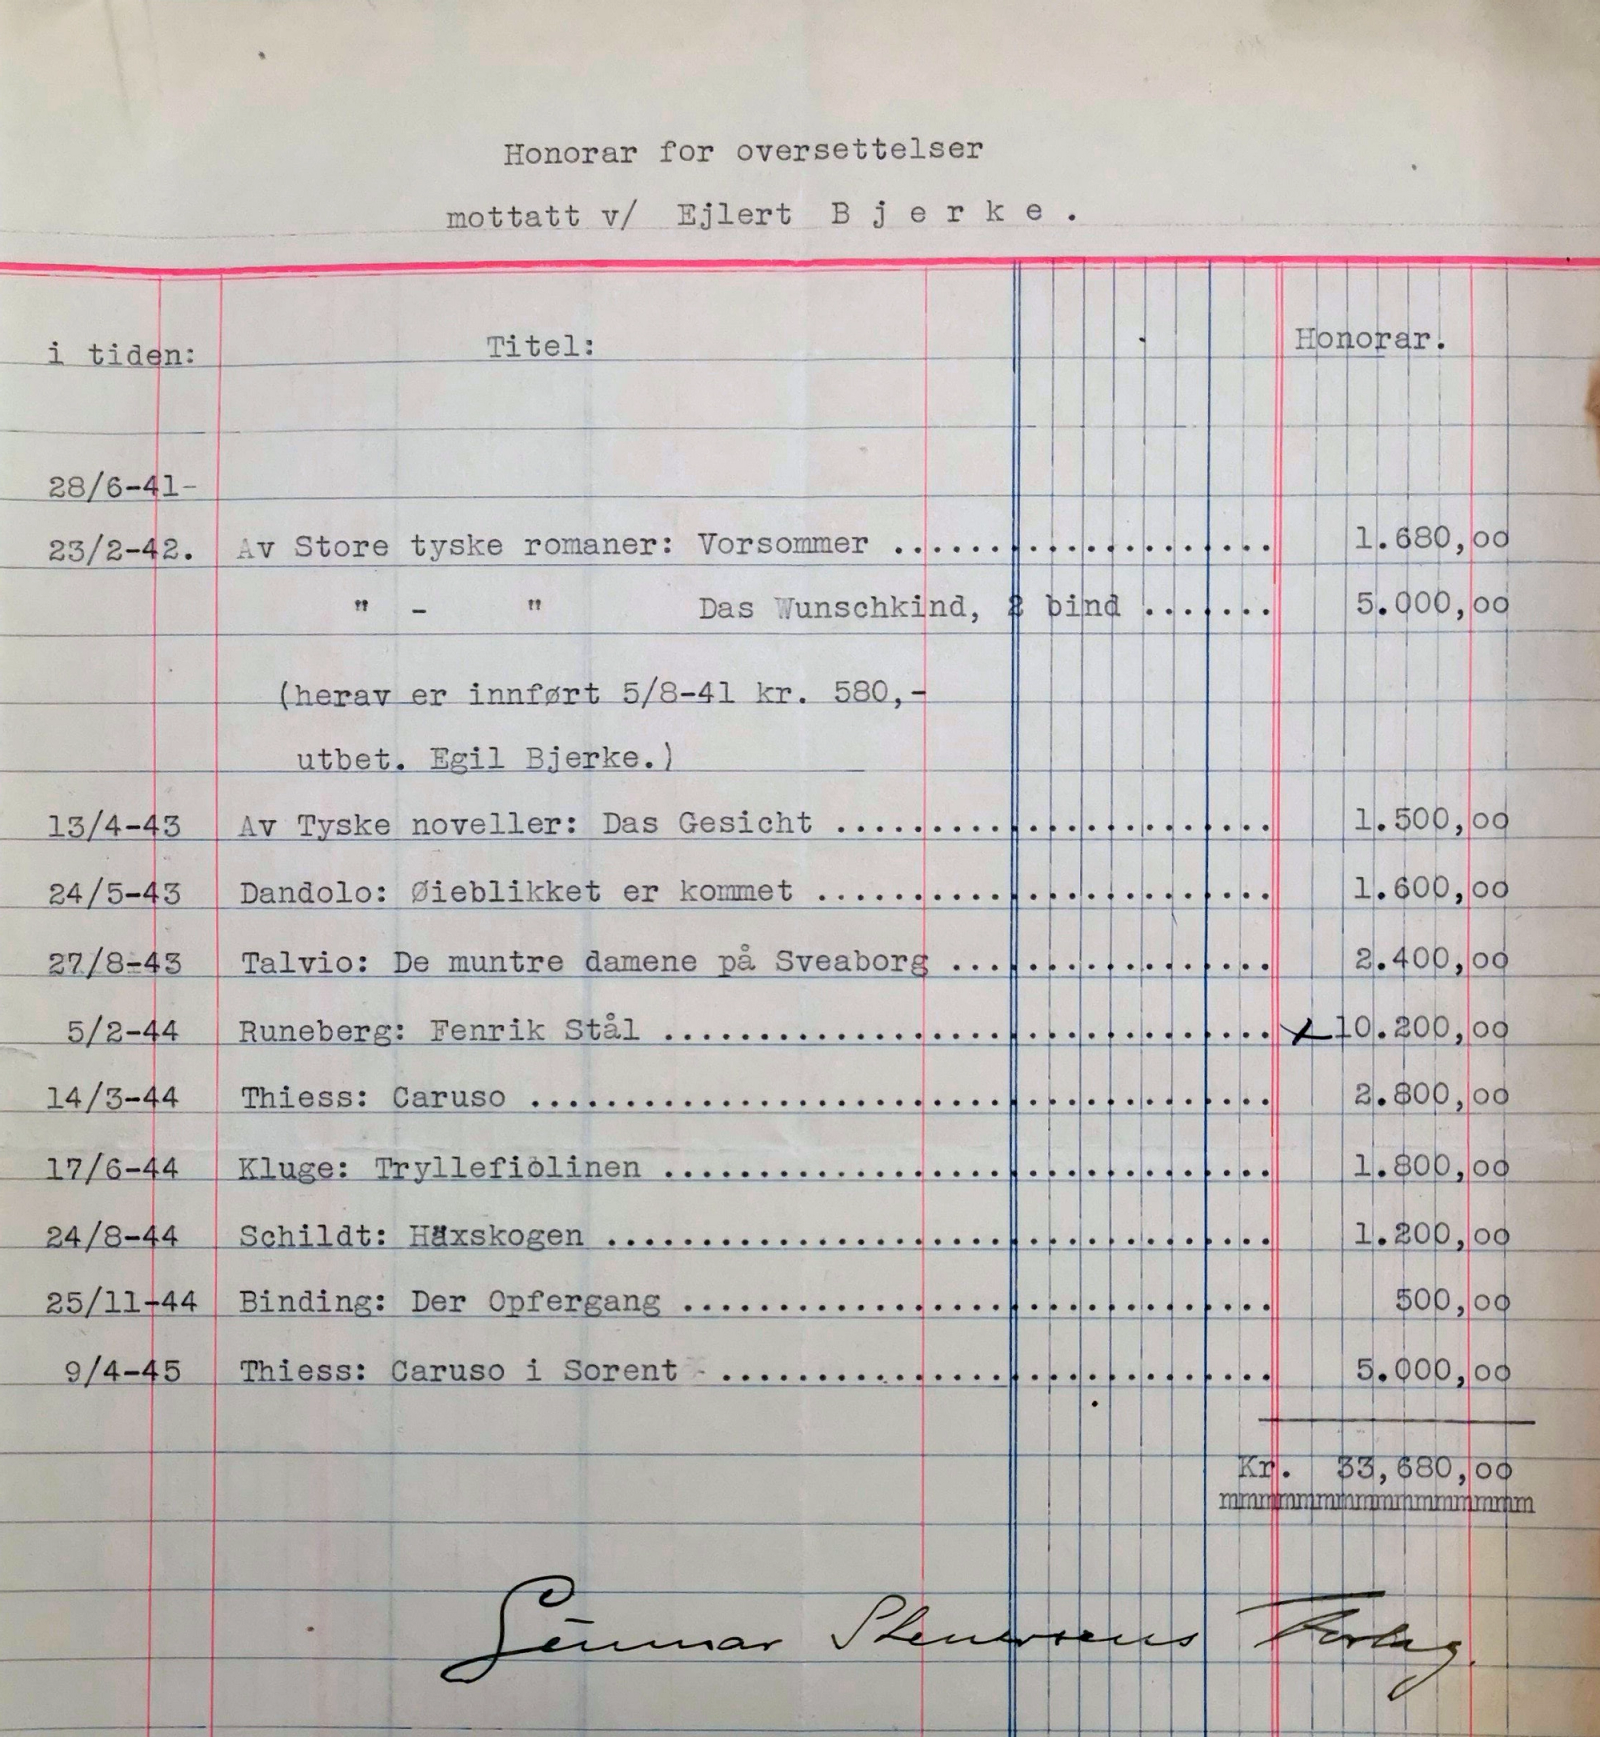 Honorar for oversettelser
mottatt v/ Ejlert B j e r k e .
i tiden: Titel: Honorar.
28/6-41-
23/2-42. Av Store tyske romaner: Vorsommer .................... 1.680,oo
" - " Das Wunschkind, 2 bind ....... 5.000,oo
(herav er innført 5/8-41 kr. 580,-
utbet. Egil Bjerke.)
13/4-43 Av Tyske noveller: Das Gesicht ....................... 1.500,oo
24/5-43 Dandolo: Øieblikket er kommet ........................ 1.600,oo
27/8-43 Talvio: De muntre damene på Sveaborg ................. 2.400,oo
5/2-44 Runeberg: Fenrik Stål ................................ x 10.200,oo
14/3-44 Thiess: Caruso ....................................... 2.800,oo
17/6-44 Kluge: Tryllefiolinen ................................ 1.800,oo
24/8-44 Schildt: Häxskogen ................................... 1.200,oo
25/11-44 Binding: Der Opfergang ............................... 500,oo
9/4-45 Thiess: Caruso i Sorent - ............................. 5.000,oo
Kr. 33,680,oo
mmmmmmmmmmmmmmmm
Gunnar Stenersens Forlag.